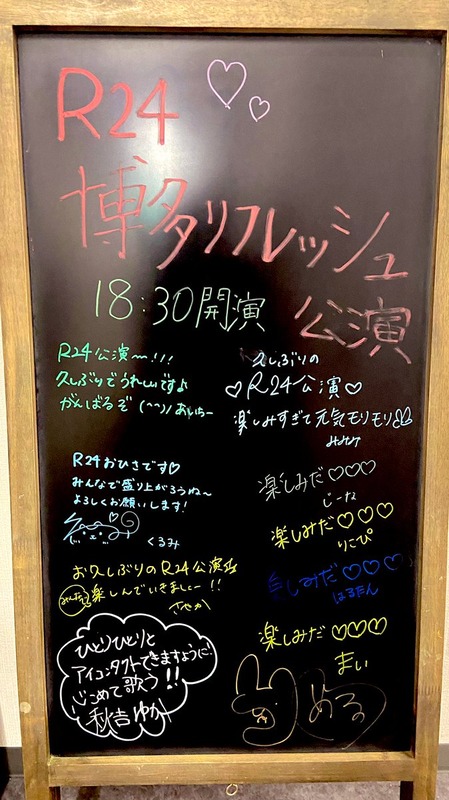 R24
博多リフレッシュ
公演
18:30開演
R24公演〜!!!
久しぶりでうれしいですよ
がんばるぞ(^^)ノあいちー
久しぶりの
♡R24公演♡
楽しみすぎて元気モリモリ
みみみ
R24おひさです♡
みんなで盛り上がろうね〜
よろしくお願いします!
くるみ
楽しみだ♡♡♡
じーな
楽しみだ♡♡♡
りこぴ
お久しぶりのR24公演
楽しんでいきましょー!!
さやか
楽しみだ♡♡♡
はるたん
楽しみだ♡♡♡
まい
ひとりひとりと
アイコンタクトできますように
心こめて歌う!!
秋吉ゆか
める